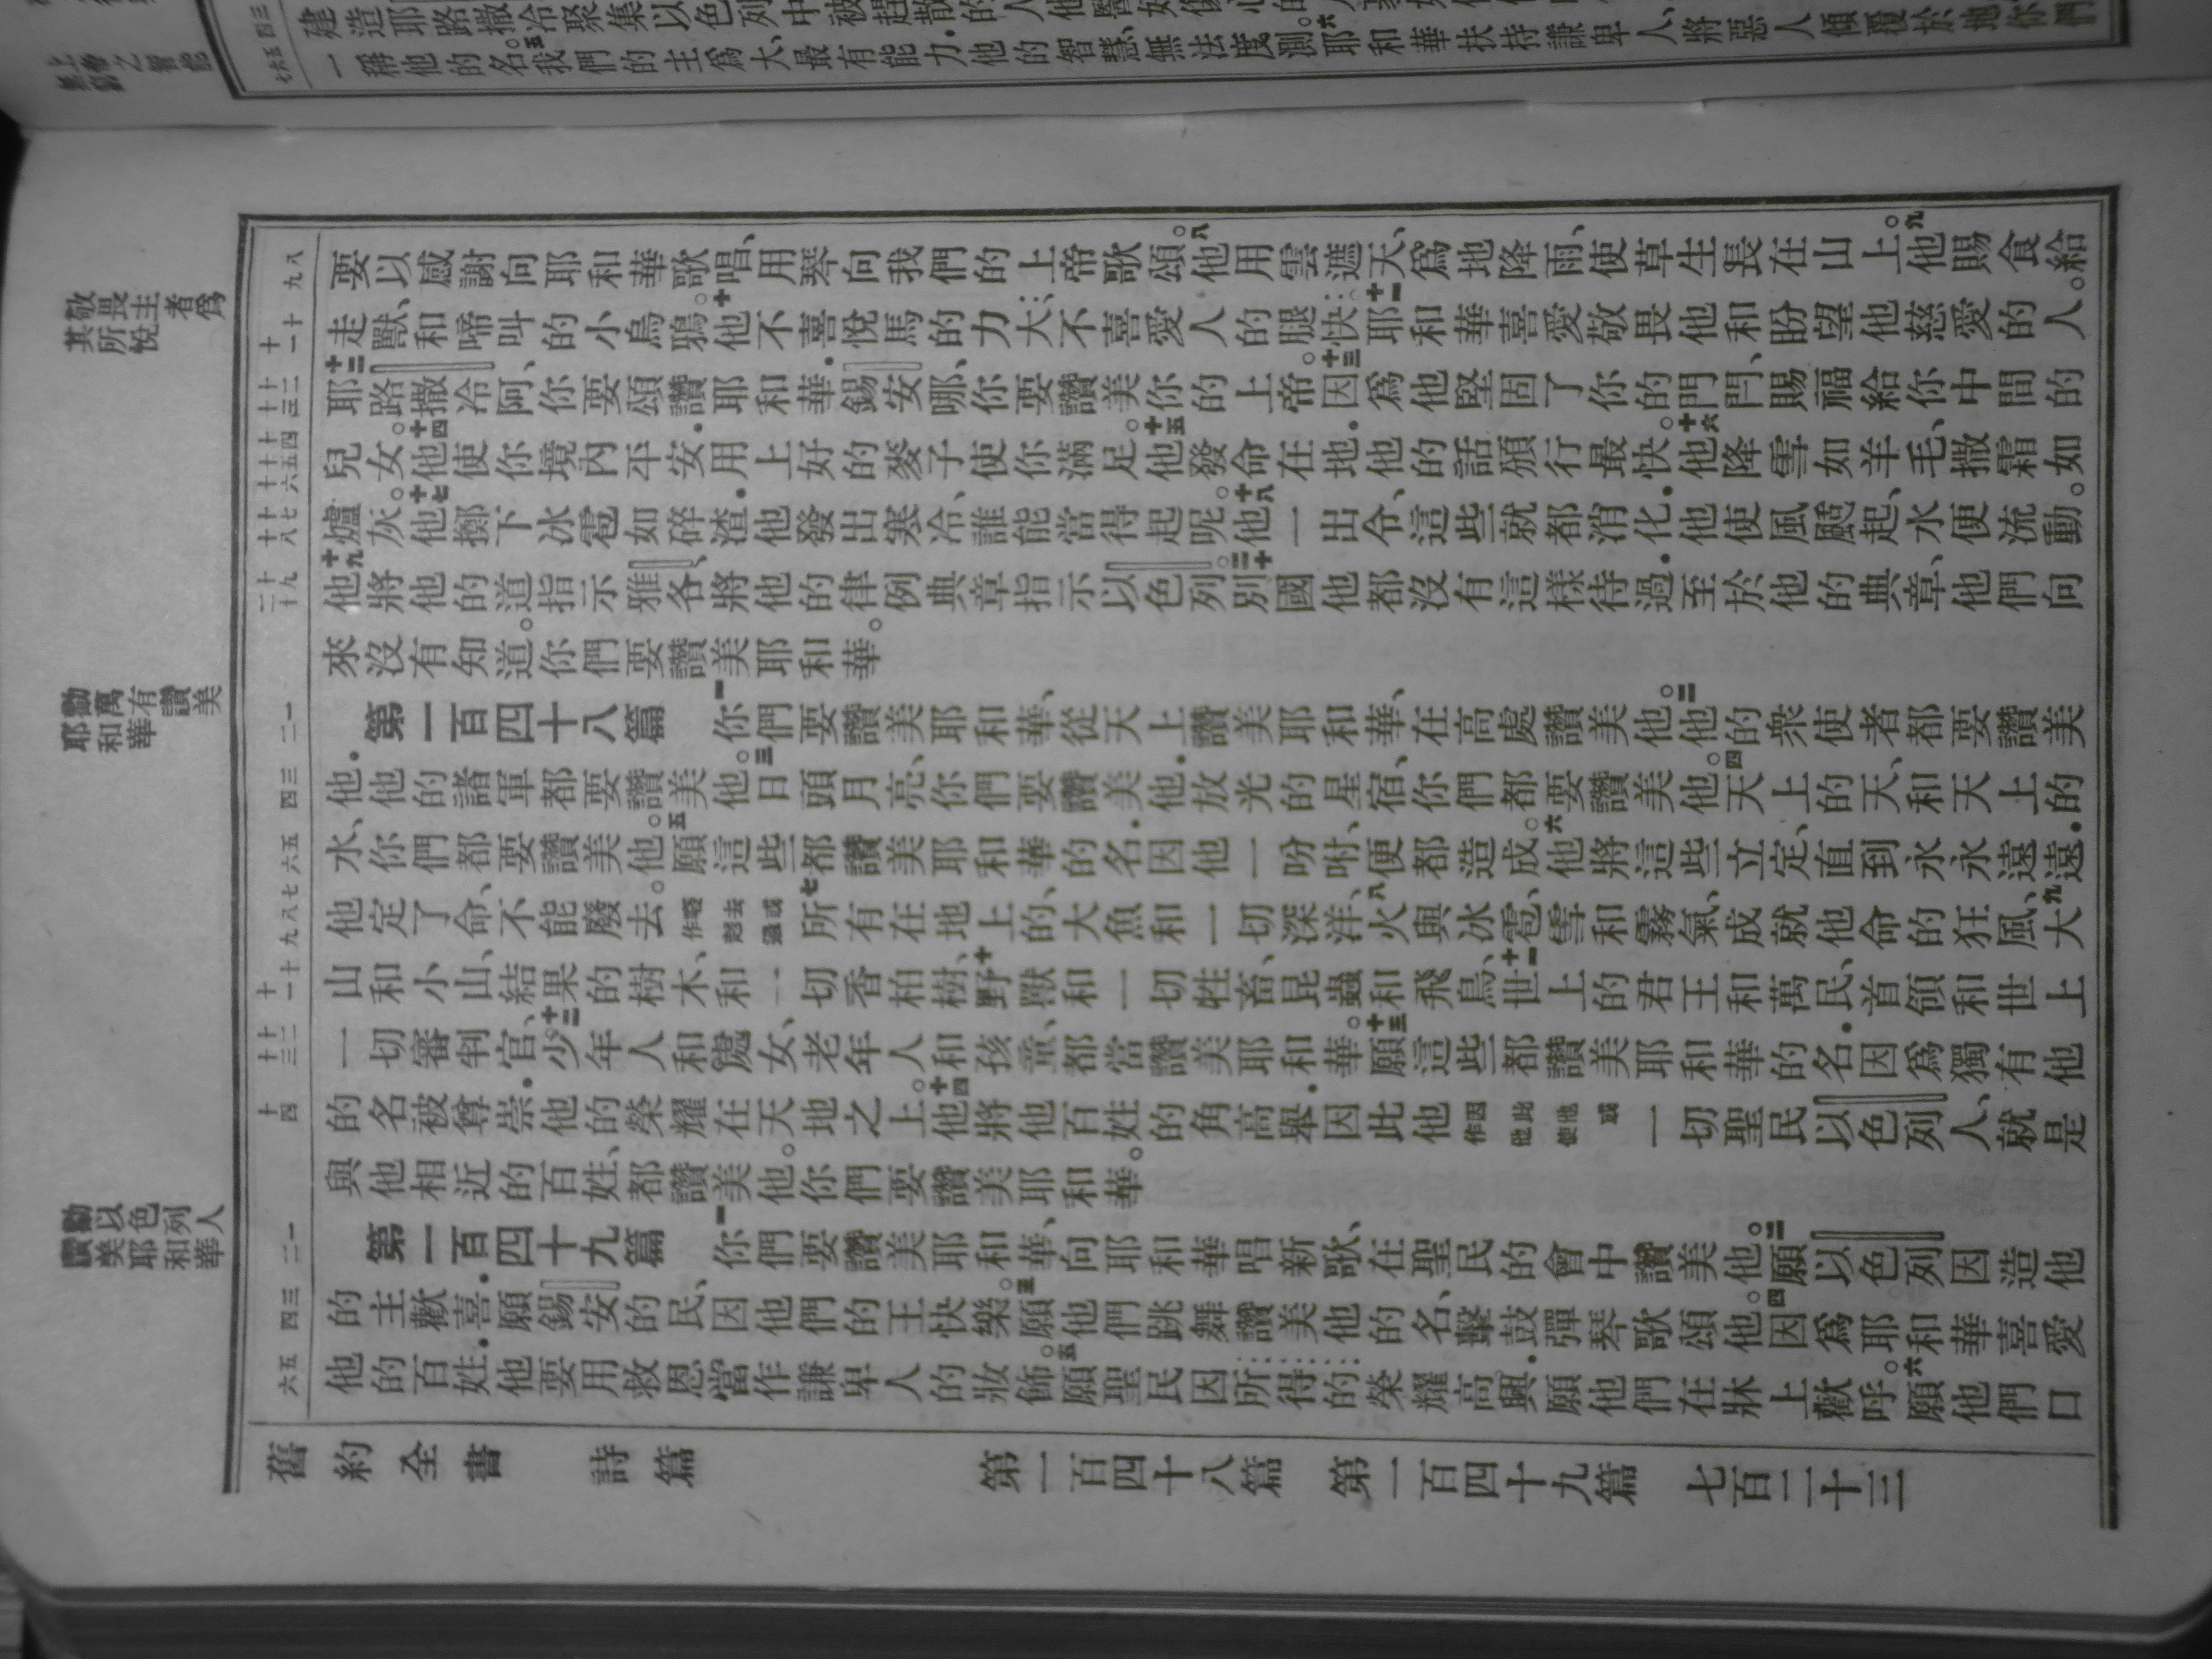 建造耶路撒冷聚集以色列中被趕散的人他醫好傷心的人
一稱他的名。五我們的主爲大、最有能力.他的智慧、無法度測。六耶和華扶持謙卑人、將惡人傾覆於地你們
要以感謝向耶和華歌唱、用琴向我們的上帝歌頌。八他用雲遮天、爲地降雨、使草生長在山上。九他賜食給
走獸、和啼叫的小烏鴉。十他不喜悅馬的力大、不喜愛人的腿快.十一耶和華喜愛敬畏他和盼望他慈愛的人。
十二耶路撒冷阿、你要頌讚耶和華.錫安哪、你要讚美你的上帝。十三因爲他堅固了你的門閂、賜福給你中間的
兒女。十四他使你境內平安.用上好的麥子使你滿足。十五他發命在地.他的話頒行最快。十六他降雪如羊毛、撒霜如
爐灰。十七他擲下冰雹如碎渣.他發出寒冷、誰能當得起呢。十八他一出令、這些就都消化.他使風颳起、水便流動。
十九他將他的道指示雅各、將他的律例典章指示以色列。二十別國他都沒有這樣待過.至於他的典章、他們向
來沒有知道。你們要讚美耶和華。
第一百四十八篇 一你們要讚美耶和華、從天上讚美耶和華、在高處讚美他。二他的衆使者都要讚美
他.他的諸軍都要讚美他。三日頭月亮、你們要讚美他.放光的星宿、你們都要讚美他。四天上的天、和天上的
水、你們都要讚美他。五願這些都讚美耶和華的名.因他一吩咐、便都造成。六他將這些立定、直到永永遠遠.
他定了命、不能廢去。或作越過去七所有在地上的、大魚和一切深洋、八火與冰雹、雪和霧氣、成就他命的狂風、九大
山和小山、結果的樹木、和一切香柏樹、十野獸和一切牲畜、昆蟲和飛鳥、十一世上的君王和萬民、首領和世上
一切審判官、十二少年人和處女、老年人和孩童、都當讚美耶和華。十三願這些都讚美耶和華的名.因爲獨有他
的名被尊崇.他的榮耀在天地之上。十四他將他百姓的角高舉.因此他或作因此使他一切聖民以色列人、就是
與他相近的百姓、都讚美他。你們要讚美耶和華。
第一百四十九篇 一你們要讚美耶和華、向耶和華唱新歌、在聖民的會中讚美他。二願以色列因造他
的主歡喜.願錫安的民、因他們的王快樂。三願他們跳舞讚美他的名、擊鼓彈琴歌頌他。四因爲耶和華喜愛
他的百姓.他要用救恩當作謙卑人的妝飾。五願聖民因所得的榮耀高興.願他們在牀上歡呼。六願他們口
敬畏主者爲
其所悅
勸萬有讚美
耶和華
勸以色列人
讚美耶和華
舊約全書 詩篇 第一百四十八篇 第一百四十九篇 七百二十三